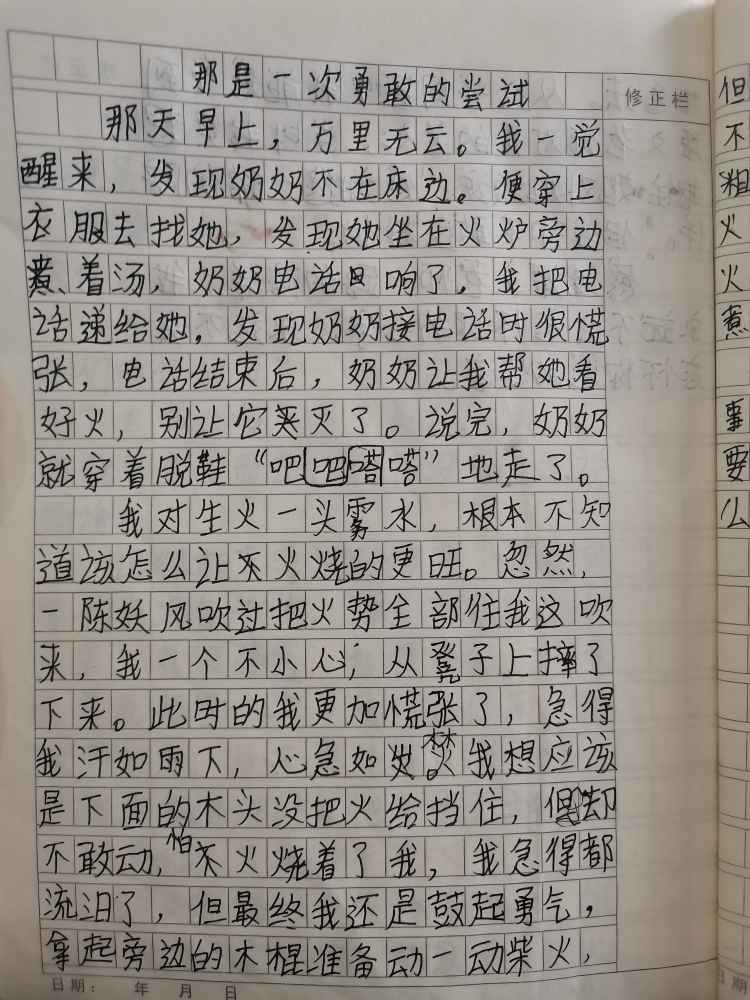 那是一次勇敢的尝试
修正栏
那天早上，万里无云。我一觉
醒来，发现奶奶不在床边。便穿上
衣服去找她，发现她坐在火炉旁边
煮着汤，奶奶电话响了，我把电
话递给她，发现奶奶接电话时很慌
张，电话结束后，奶奶让我帮她看
好火，别让它灭了。说完，奶奶
就穿着脱鞋“吧吧嗒嗒”地走了。
我对生火一头雾水，根本不知
道该怎么让火烧的更旺。忽然，
一陈妖风吹过把火势全部往我这吹
来，我一个不小心，从凳子上摔了
下来。此时的我更加慌张了，急得
我汗如雨下，心急如焚。我想应该
是下面的木头没把火给挡住，但却
不敢动，怕火烧着了我，我急得都
流泪了，但最终我还是鼓起勇气，
拿起旁边的木棍准备动一动柴火，
日期： 年 月 日
但
不
火
火
煮
事
要
么
日期